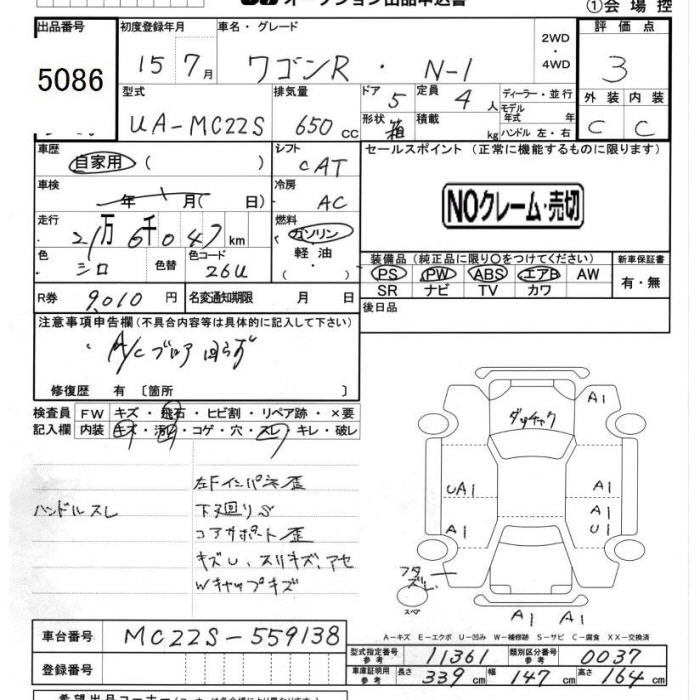 オークション出品申込書 ①会場控
出品番号 初度登録年月 車名・グレード 2WD・4WD 評価点
5086 15 7月 ワゴンR・N-1 3
型式 排気量 ドア 5 定員 4人 ディーラー・並行 外装 内装
UA-MC22S 650cc 形状 箱 積載 kg モデル年式 年 ハンドル 左・右 C C
車歴 自家用 ( ) シフト CAT セールスポイント (正常に機能するものに限ります)
車検 年 月( 日) 冷房 AC NOクレーム・売切
走行 21万6千047km 燃料 ガソリン
軽油
( )
色 シロ 色替 色コード 26U
装備品 (純正品に限り○をつけてください) 新車保証書
PS PW ABS エアB AW 有・無
SR ナビ TV カワ
R券 9,010円 名変通知期限 月 日 後日品
注意事項申告欄 (不具合内容等は具体的に記入して下さい)
A/Cブロア回らず
修復歴 有 〔箇所 〕
検査員 FW キズ・飛石・ヒビ割・リペア跡・×要
記入欄 内装 キズ・汚レ・コゲ・穴・スレ・キレ・破レ
ハンドルスレ
左Fインパネ歪
下廻りS
コアサポート歪
キズU、スリキズ、アセ
Wキャップキズ
A1
UA1 A1
A1
A1 U1
スペア
A1 A1
A-キズ E-エクボ U-凹み W-補修跡 S-サビ C-腐食 XX-交換済
車台番号 MC22S-559138
登録番号
型式指定番号 参考 11361 類別区分番号 参考 0037
車庫証明用 参考 長さ 339cm 幅 147cm 高さ 164cm